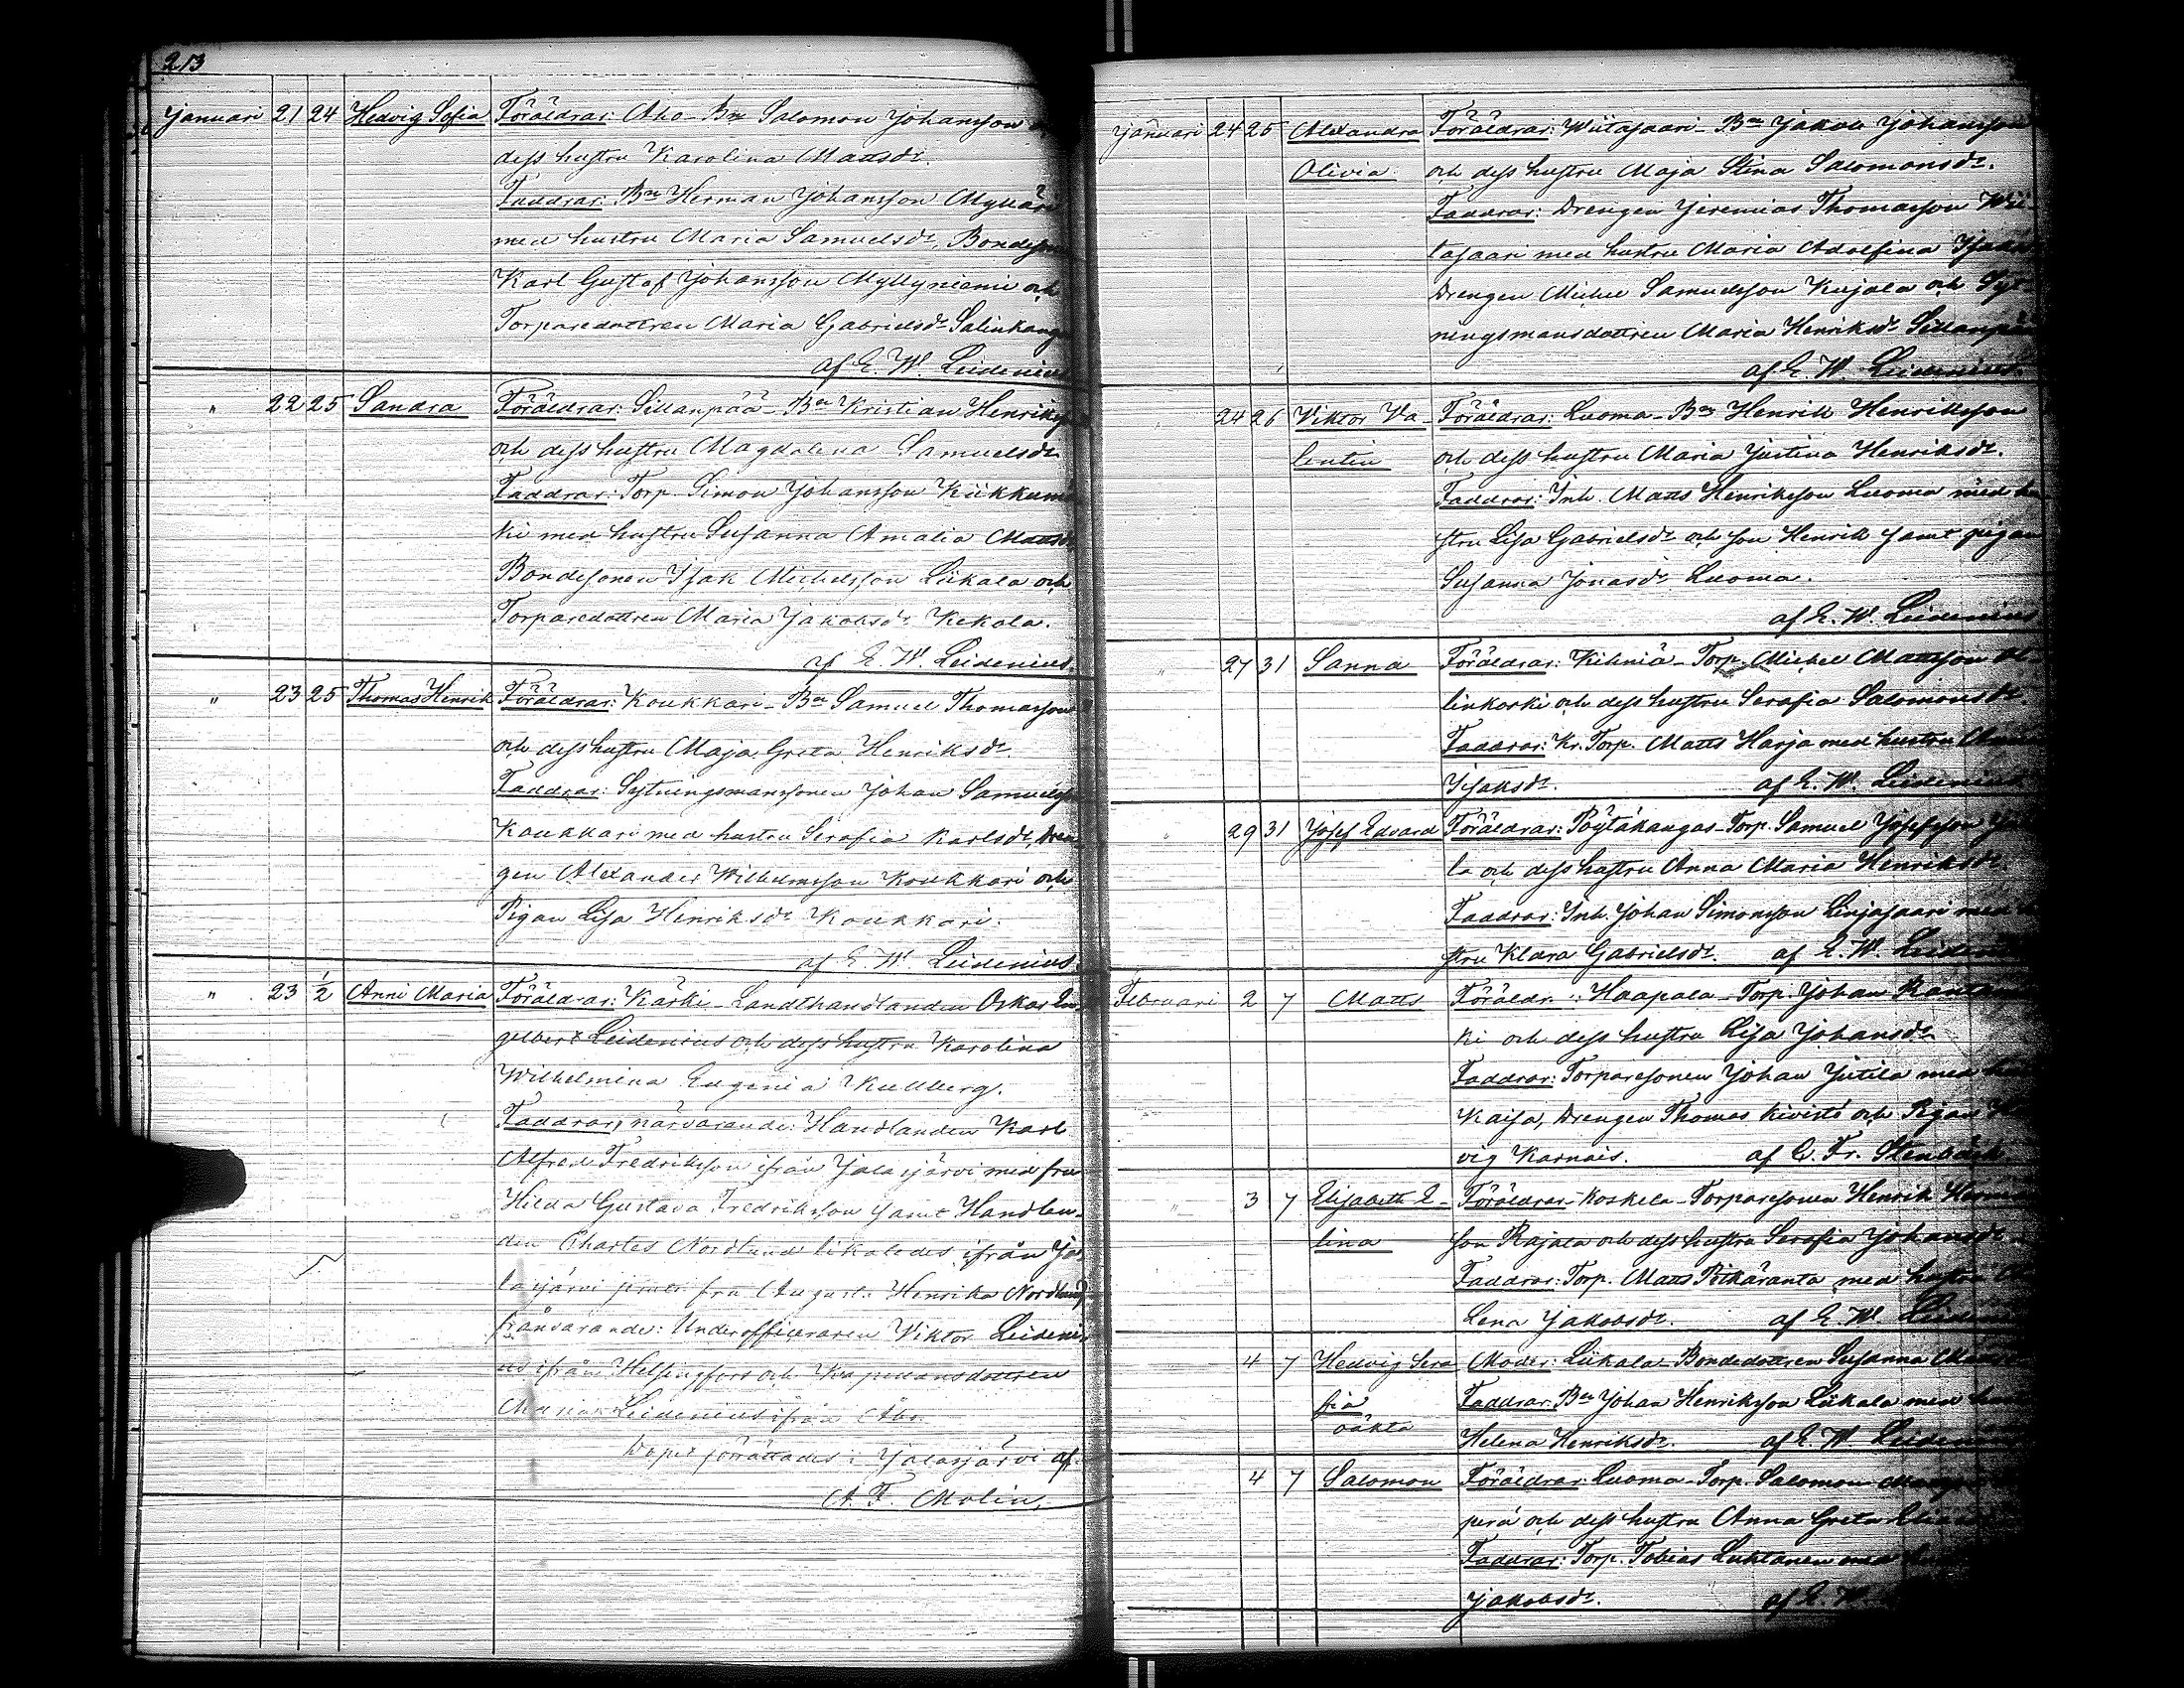 213
Januari 21 24 Hedvig Sofia Föräldrar: Aho-Bn Salomon Johansson
dess hustru Karolina Mattsdr.
Faddrar: Bn Herman Johansson Mylläri
med hustru Maria Samuelsdr, Bondeson
Karl Gustaf Johansson Myllyniemi och
Torparedottren Maria Gabrielsdr Salinkangas
af E. W. Leidenius
" 22 25 Sandra Föräldrar: Sillanpää-Bn Kristian Henriksson
och dess hustru Magdalena Samuelsdr
Faddrar: Torp. Simon Johansson Kiikkumä
ki med hustru Susanna Amalia Mattsdr
Bondesonen Isak Michelsson Liikala och
Torparedottren Maria Jakobsdr Kekola.
af E. W. Leidenius.
" 23 25 Thomas Henrik Föräldrar: Koukkari-Bn Samuel Thomasson
och dess hustru Maja Greta Henriksdr.
Faddrar: Sytningsmanssonen Johan Samuelsson
Koukkari med hustru Serafia Karlsdr, Dren
gen Alexander Wilhelmsson Koukkari och
Pigan Lisa Henriksdr Koukkari.
af E. W. Leidenius.
" 23 1/2 Anni Maria Föräldrar: Kärki-Landthandlanden Oskar En
gelbert Leidenius och dess hustru Karolina
Wilhelmina Eugenia Kullberg.
Faddrar, närvarande: Handlanden Karl
Alfred Fredriksson ifrån Jalasjärvi med fru
Hilda Gustava Fredriksson samt Handlan-
den Charles Nordlund likaledes ifrån Ja
lasjärvi jemte fru Augusta Henrika Nordlund,
frånvarande: Underofficeraren Viktor Leideni
us ifrån Helsingfors och Kapellansdottren
Maria Leidenius ifrån Åbo.
Dopet förrättades i Jalasjärvi af
A. F. Molin.
Januari 24 25 Alexandra Föräldrar: Wiitasaari-Bn Jakob Johansson
Olivia och dess hustru Maja Stina Salomonsdr.
Faddrar: Drengen Jeremias Thomasson Wii-
tasaari med hustru Maria Adolfina Isaksdr
Drengen Michel Samuelsson Kujala och Syt-
ningsmansdottren Maria Henriksdr Sillanpää
af E. W. Leidenius.
" 24 26 Viktor Va- Föräldrar: Luoma-Bn Henrik Henriksson
lentin och dess hustru Maria Justina Henriksdr.
Faddrar: Inh. Matts Henriksson Luoma med hu
stru Lisa Gabrielsdr och son Henrik samt pigan
Susanna Jonasdr Luoma.
af E. W. Leidenius
" 27 31 Sanna Föräldrar: Kihniä-Torp. Michel Mattsson
linkoski och dess hustru Serafia Salomonsdr.
Faddrar: Kr. Torp. Matts Harja med hustru
Isaksdr. af E. W. Leidenius
" 29 31 Josef Edvard Föräldrar: Pöytäkangas-Torp. Samuel Josefsson
la och dess hustru Anna Maria Henriksdr.
Faddrar: Inh. Johan Simonsson Linjasaari med hu
stru Klara Gabrielsdr. af E. W. Leidenius
Februari 2 7 Matts Föräldr.: Haapala-Torp. Johan Rantamä
ki och dess hustru Lisa Johansdr
Faddrar: Torparesonen Johan Jutila med hu
Kajsa, Drengen Thomas Kivistö och Pigan He
vig Karnais. af C. Fr. Stenbäck.
" 3 7 Elisabeth E- Föräldrar: Koskela-Torparesonen Henrik Herman
lina son Rajala och dess hustru Serafia Johansdr
Faddrar: Torp. Matts Pitkäranta med hustru
Lena Jakobsdr. af E. W. Leidenius
4 7 Hedvig Sera Moder: Liikala-Bondedottren Susanna
fia Faddrar: Bn Johan Henriksson Liikala med hu
oäkta
Helena Henriksdr. af E. W. Leidenius
4 7 Salomon Föräldrar: Luoma-Torp. Salomon
perä och dess hustru Anna Greta
Faddrar: Torp. Tobias Luhtanen med
Jakobsdr. af E. W.